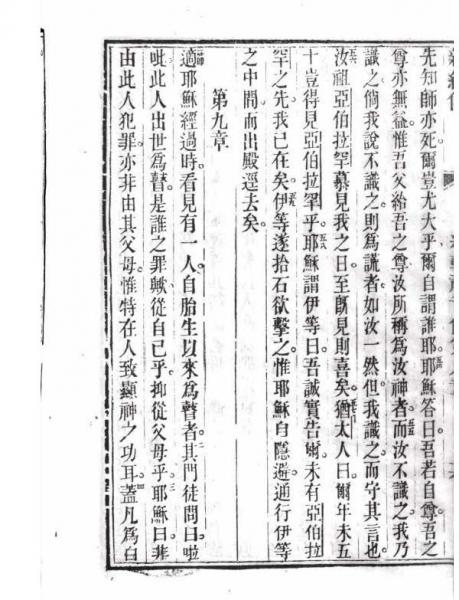 先知師亦死爾豈尤大乎爾自謂誰耶耶穌答曰吾若自尊吾之
尊亦無益惟吾父給吾之尊汝所稱為汝神者而汝不識之我乃
識之倘我說不識之則為謊者如汝一然但我識之而守其言也
汝祖亞伯拉罕慕見我之日至旣見則喜矣猶太人曰爾年未五
十豈得見亞伯拉罕乎耶穌謂伊等曰吾誠實告爾未有亞伯拉
罕之先我已在矣伊等遂拾石欲擊之惟耶穌自隱避通行伊等
之中間而出殿逕去矣
第九章
適耶穌經過時看見有一人自胎生以來為瞽者其門徒問曰啦
吡此人出世為瞽是誰之罪歟從自己乎抑從父母乎耶穌曰非
由此人犯罪亦非由其父母惟特在人致顯神之功耳蓋凡為白